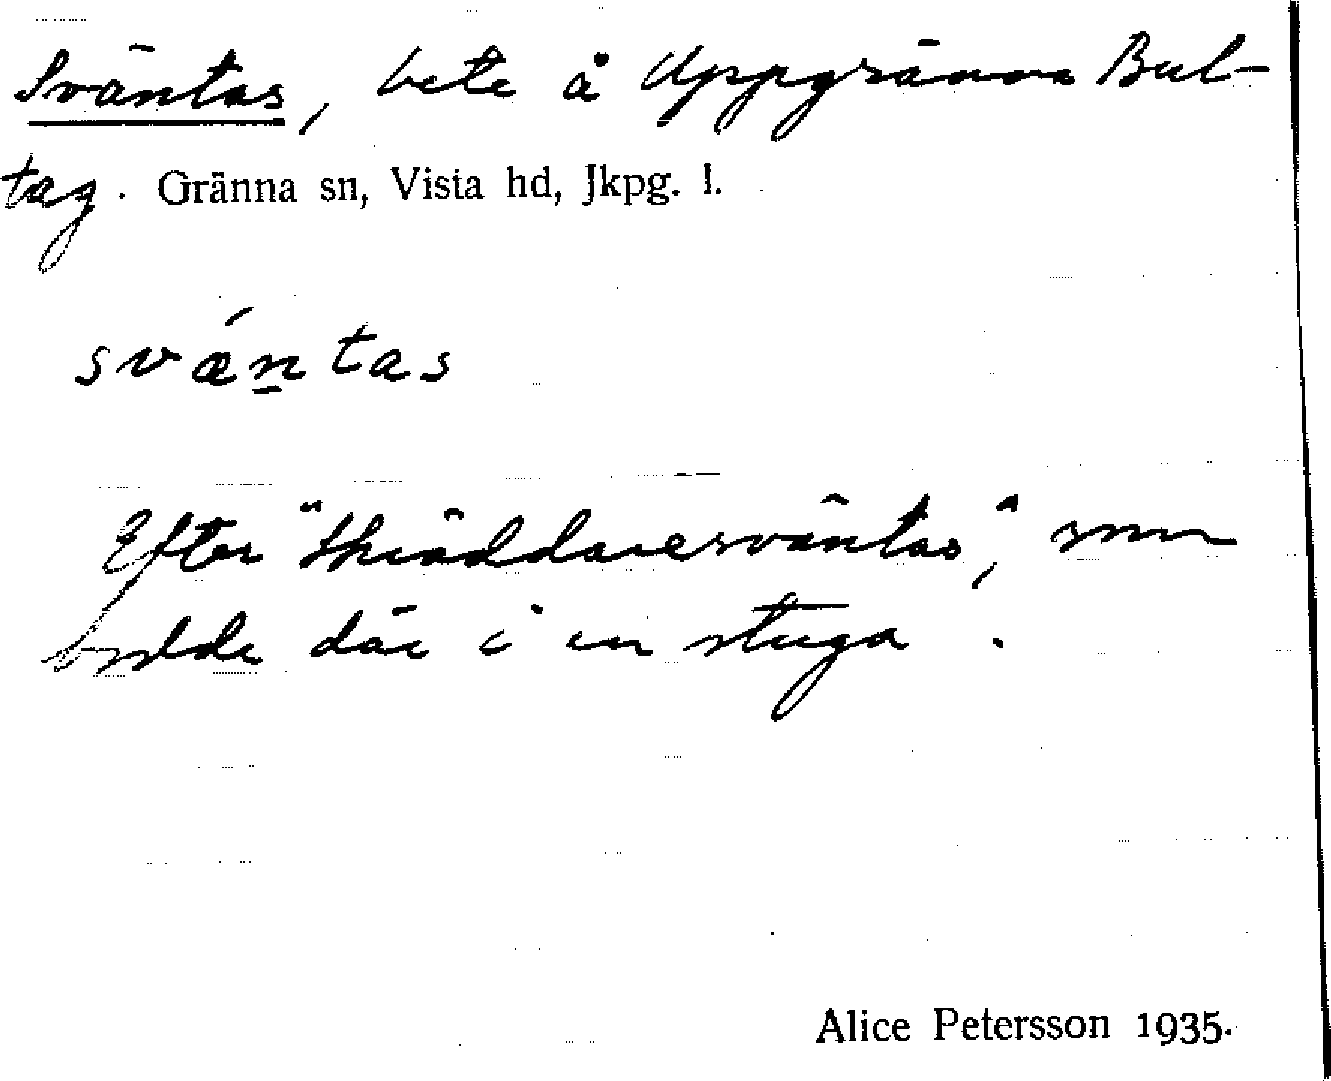 Sväntas, bete å Uppgränna Bul-
tag. Gränna sn, Vista hd, Jkpg. l.
svǽn̲tas
Efter "Skräddaresväntas", som
bodde där i en stuga.
Alice Petersson 1935.